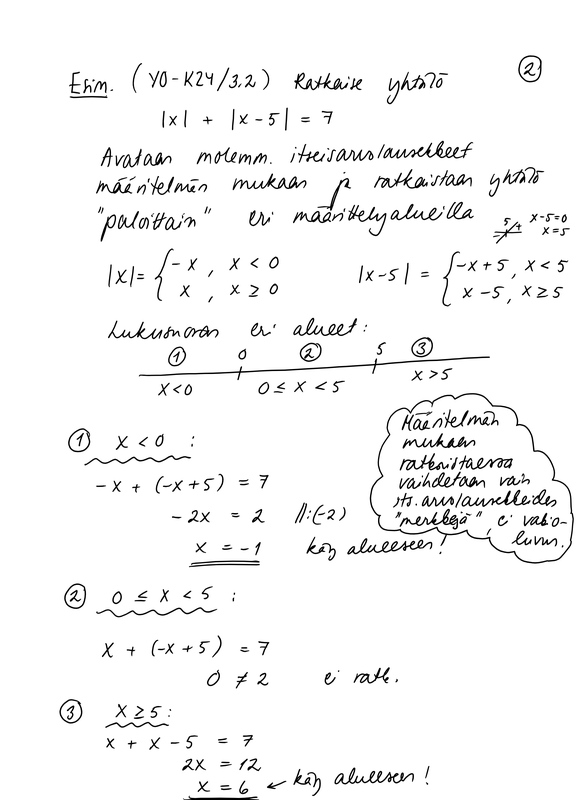 ②
Esim. (YO-K24/3.2) Ratkaise yhtälö
|x| + |x-5| = 7
Avataan molemm. itseisarvolausekkeet
määritelmän mukaan ja ratkaistaan yhtälö
"paloittain" eri määrittelyalueilla
5 + x-5=0
x=5
|x|= { -x , x < 0
x , x ≥ 0
|x-5| = { -x+5 , x < 5
x-5 , x ≥ 5
Lukusuoran eri alueet:
① 0 ② 5 ③
x<0 0 ≤ x < 5 x >5
Määritelmän
mukaan
ratkaistaessa
vaihdetaan vain
its.arvolausekkeiden
"merkkejä", ei vakio-
luvun.
① x < 0 :
-x + (-x+5) = 7
-2x = 2 ||:(-2)
x = -1 käy alueeseen!
② 0 ≤ x < 5 :
x + (-x+5) = 7
0 ≠ 2 ei ratk.
③ x ≥ 5:
x + x - 5 = 7
2x = 12
x = 6 ← käy alueeseen!